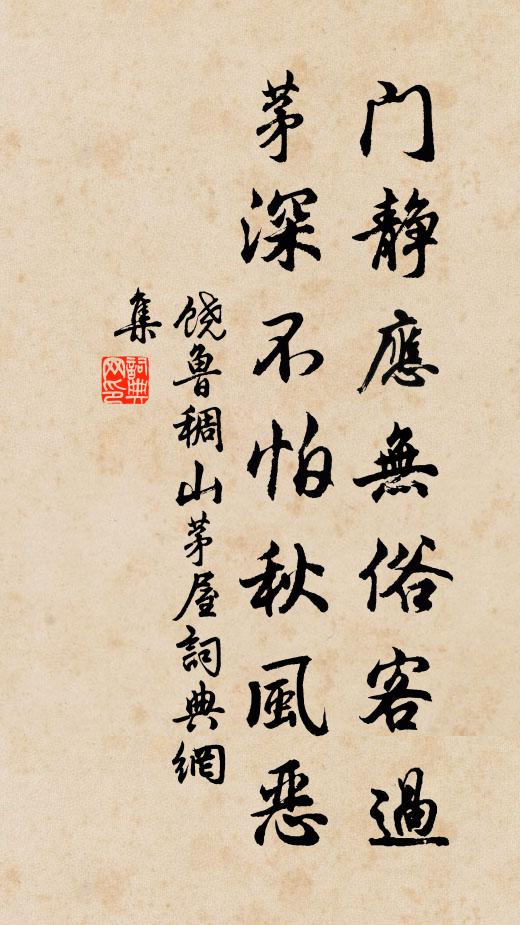 门静應無俗客過
茅深不怕秋風恶
饶魯稠山茅屋詞典網
集
詞典网印